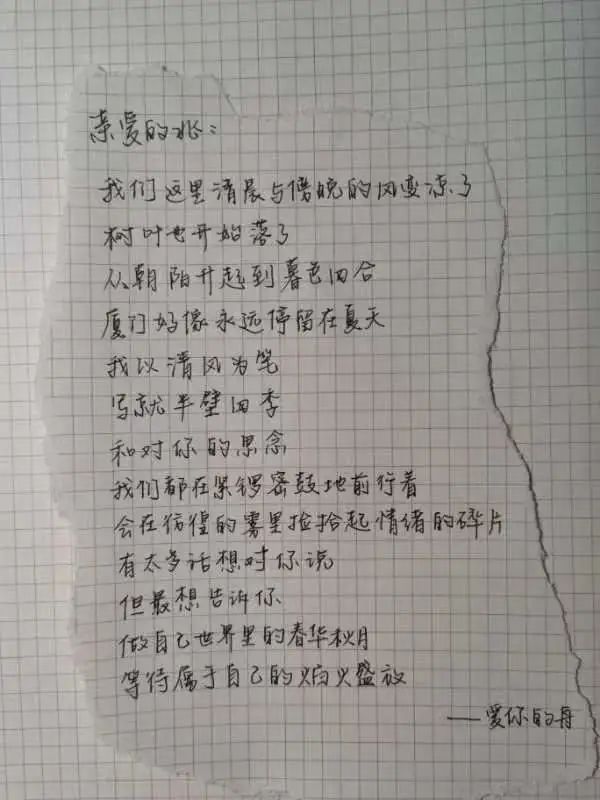 亲爱的兆：
我们这里清晨与傍晚的风变凉了
树叶也开始落了
从朝阳升起到暮色四合
厦门好像永远停留在夏天
我以清风为笔
写就半壁四季
和对你的思念
我们都在紧锣密鼓地前行着
会在彷徨的雾里捡拾起情绪的碎片
有太多话想对你说
但最想告诉你
做自己世界里的春华秋月
等待属于自己的焰火盛放
——爱你的舟